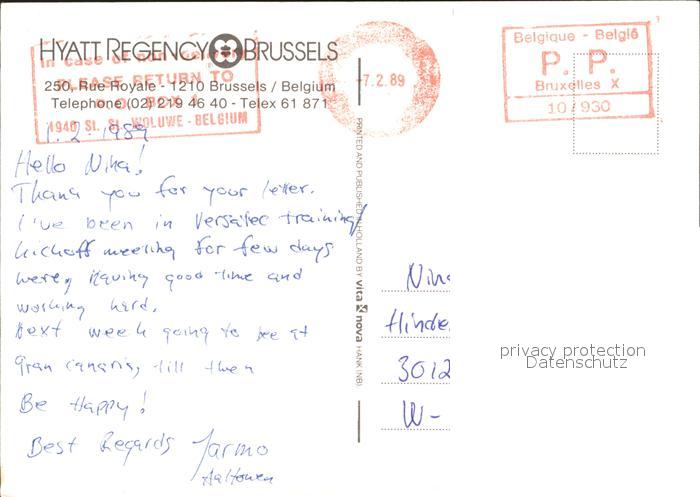 HYATT REGENCY BRUSSELS
250, Rue Royale - 1210 Brussels / Belgium
Telephone (02) 219 46 40 - Telex 61 871
In case of non
PLEASE RETURN TO
P.O. BOX
1940 St. St. WOLUWE - BELGIUM
-7.2.89
Belgique - België
P. P.
Bruxelles X
10/930
1.2.1989
Hello Nina!
Thank you for your letter.
I've been in Versatec training/
kickoff meeting for few days
here, having good time and
working hard.
Next week going to be at
gran canaria, till then
Be Happy!
Best Regards Jarmo
Aaltonen
PRINTED AND PUBLISHED IN HOLLAND BY vita nova HANK (NB)
Nina
Hinde
3012
W-
privacy protection
Datenschutz